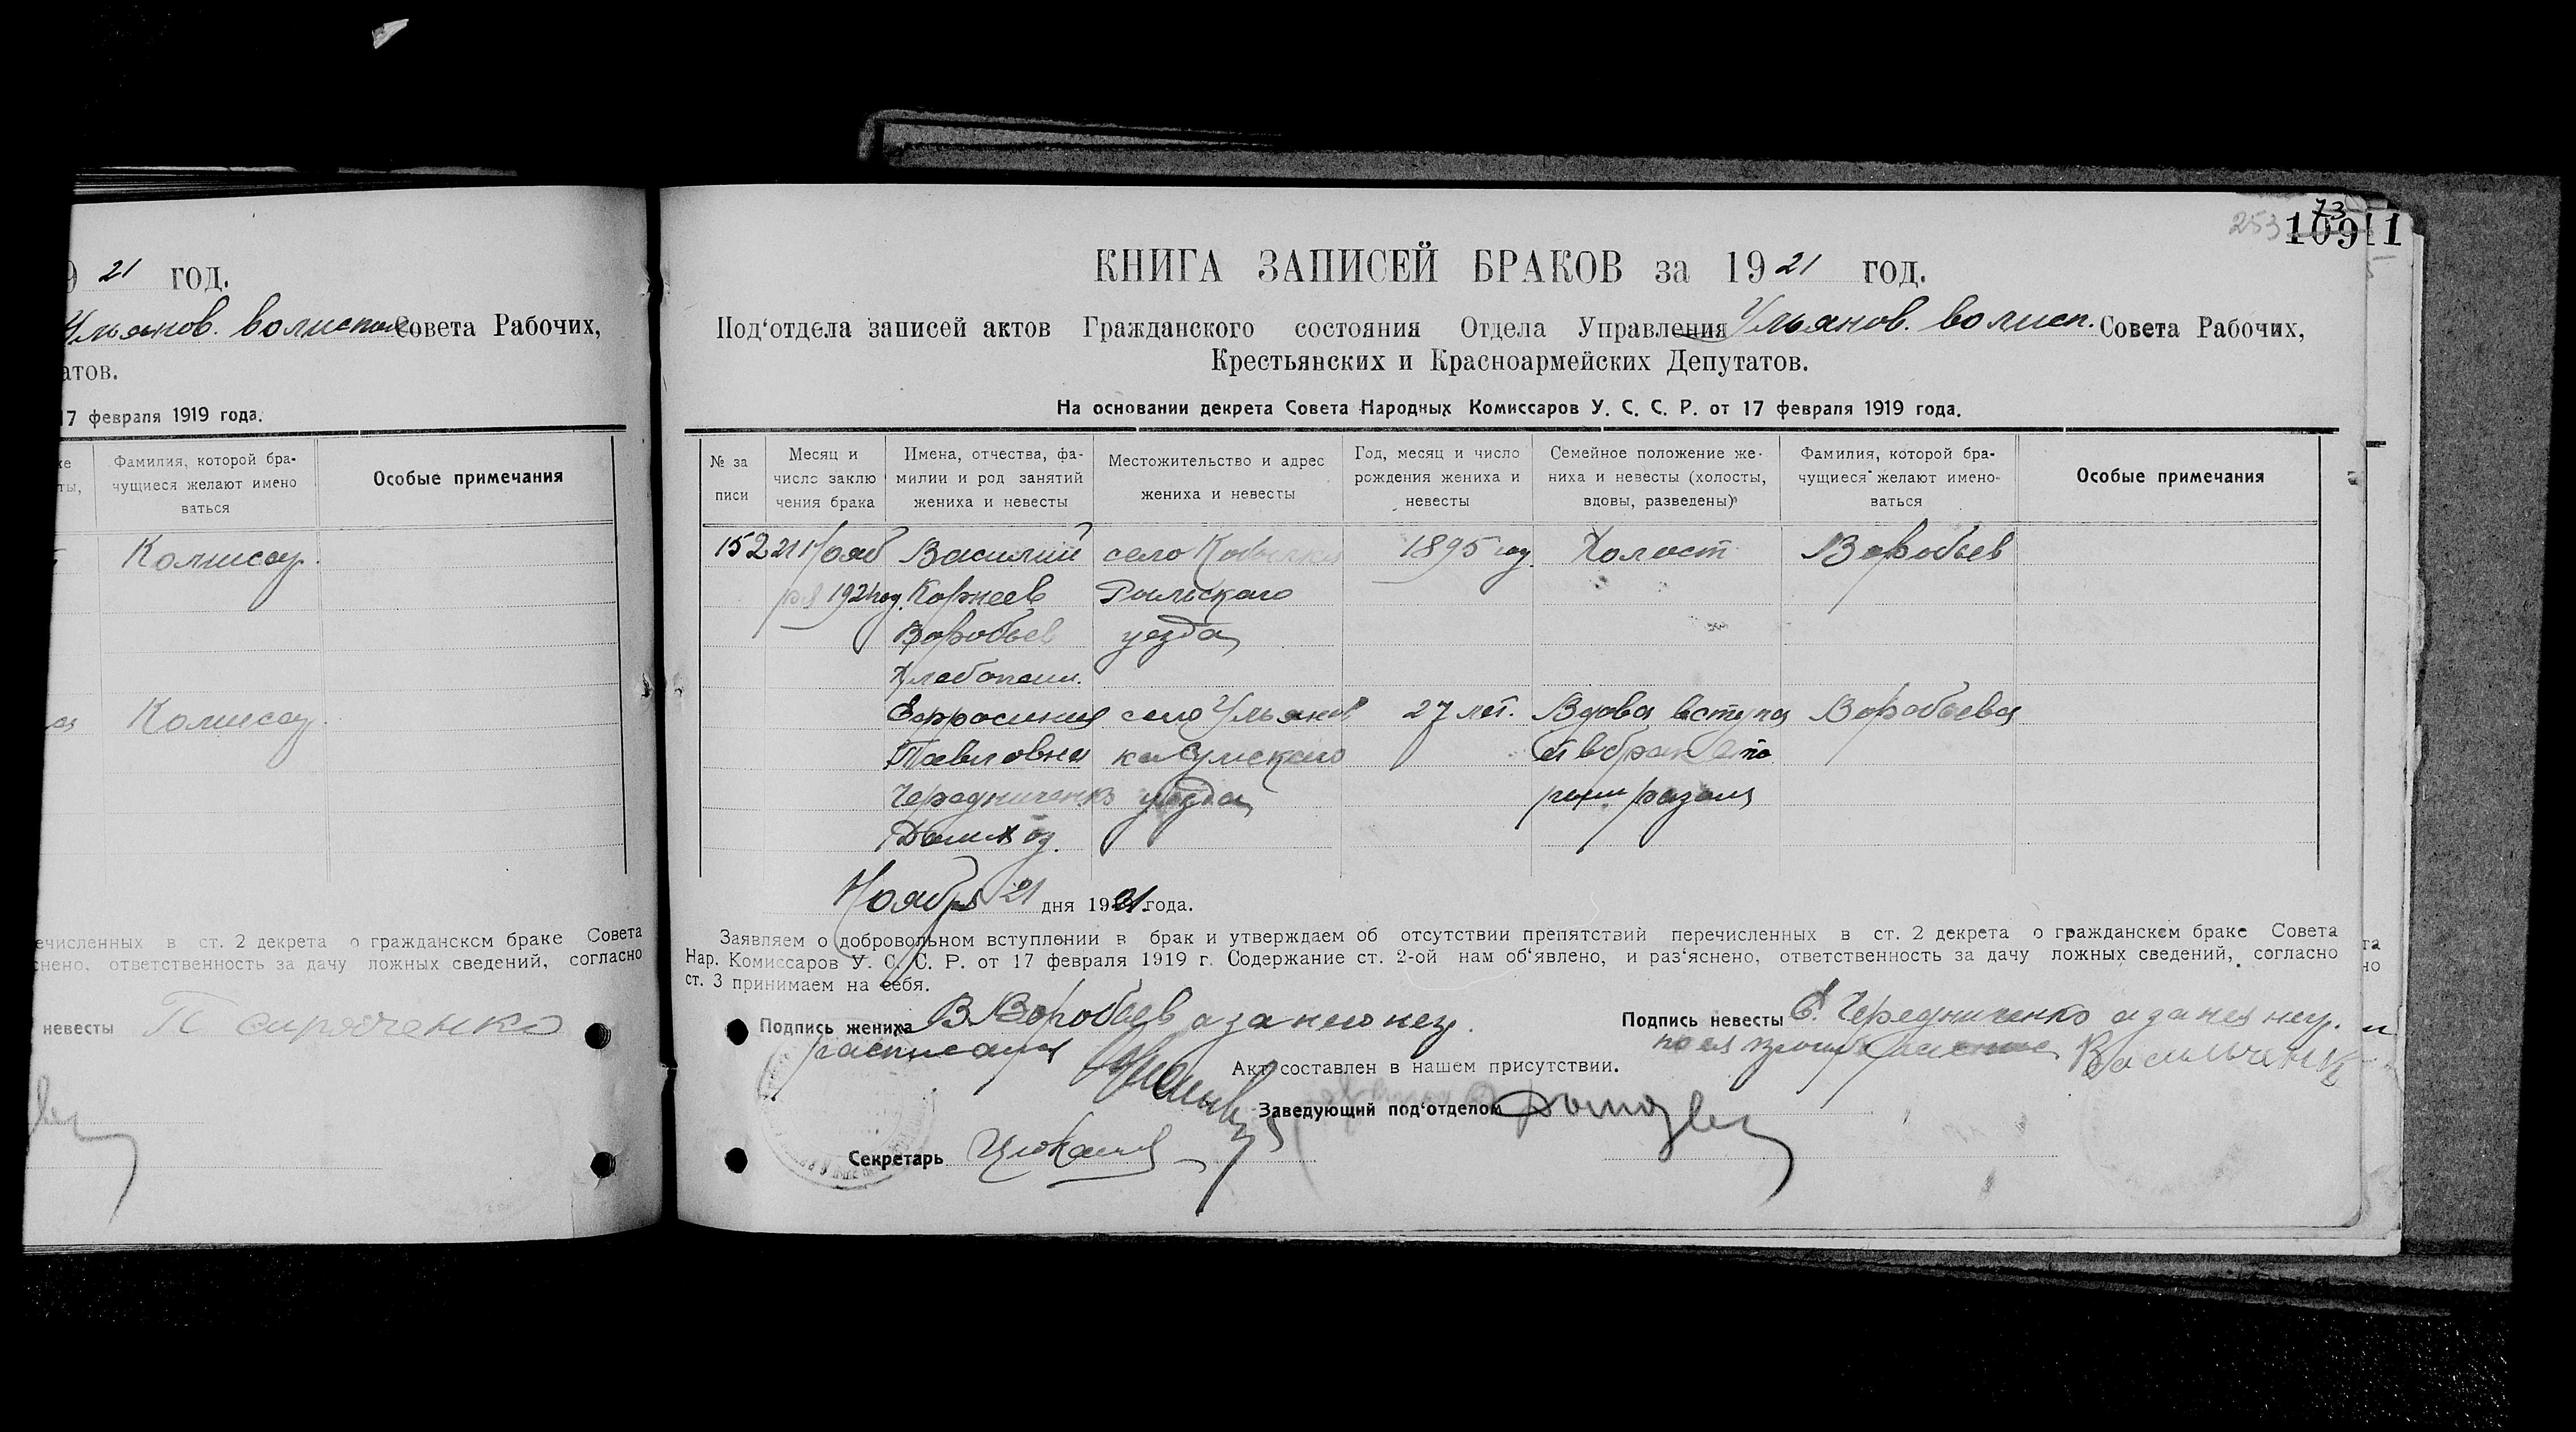 21 год.
Ульянов. волиспол Совета Рабочих,
атов.
17 февраля 1919 года.
Фамилия, которой бра-
чущиеся желают имено
ваться
Особые примечания
Комисар.
Комисар.
ечисленных в ст. 2 декрета о гражданском браке Совета
снено, ответственность за дачу ложных сведений, согласно
невесты
253 109 73 11
КНИГА ЗАПИСЕЙ БРАКОВ за 1921 год.
Под‘отдела записей актов Гражданского состояния Отдела Управления Ульянов. волисп. Совета Рабочих,
Крестьянских и Красноармейских Депутатов.
На основании декрета Совета Народных Комиссаров У. С. С. Р. от 17 февраля 1919 года.
№ за
писи
Месяц и
число заклю
чения брака
Имена, отчества, фа-
милии и род занятий
жениха и невесты
Местожительство и адрес
жениха и невесты
Год, месяц и число
рождения жениха и
невесты
Семейное положение же-
ниха и невесты (холосты,
вдовы, разведены)
Фамилия, которой бра-
чущиеся желают имено-
ваться
Особые примечания
152 21 Нояб Василий село 1895 год. Холост Воробьев
ря 1921 год. Корнеев Рыльскаго
Воробьев уезда
Хлебопаш.
Ефросиния село Ульянов 27 лет. Вдова вступа Воробьева
Павловна ка Сумскаго ет в брак вто
Чередниченко уезда рым разом
Домиход.
Ноября 21 дня 1921 года.
Заявляем о добровольном вступлении в брак и утверждаем об отсутствии препятствий перечисленных в ст. 2 декрета о гражданском браке Совета
Нар. Комиссаров У. С. С. Р. от 17 февраля 1919 г. Содержание ст. 2-ой нам об‘явлено, и раз‘яснено, ответственность за дачу ложных сведений, согласно
ст. 3 принимаем на себя.
Подпись жениха В Воробьев а за него нег.
расписался
Подпись невесты Е. Чередниченко а за нея нег.
по ея
Акт составлен в нашем присутствии.
Заведующий под‘отделом
Секретарь